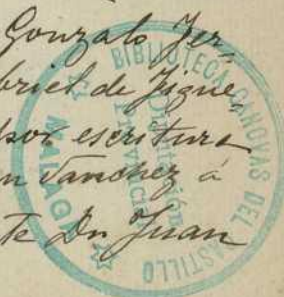 Gonzalo Fer-
briel de Figue-
por escritura
n Sanchez á
te Dn Juan
BIBLIOTECA CANOVAS DEL CASTILLO
Diputación
Provincial
MALAGA